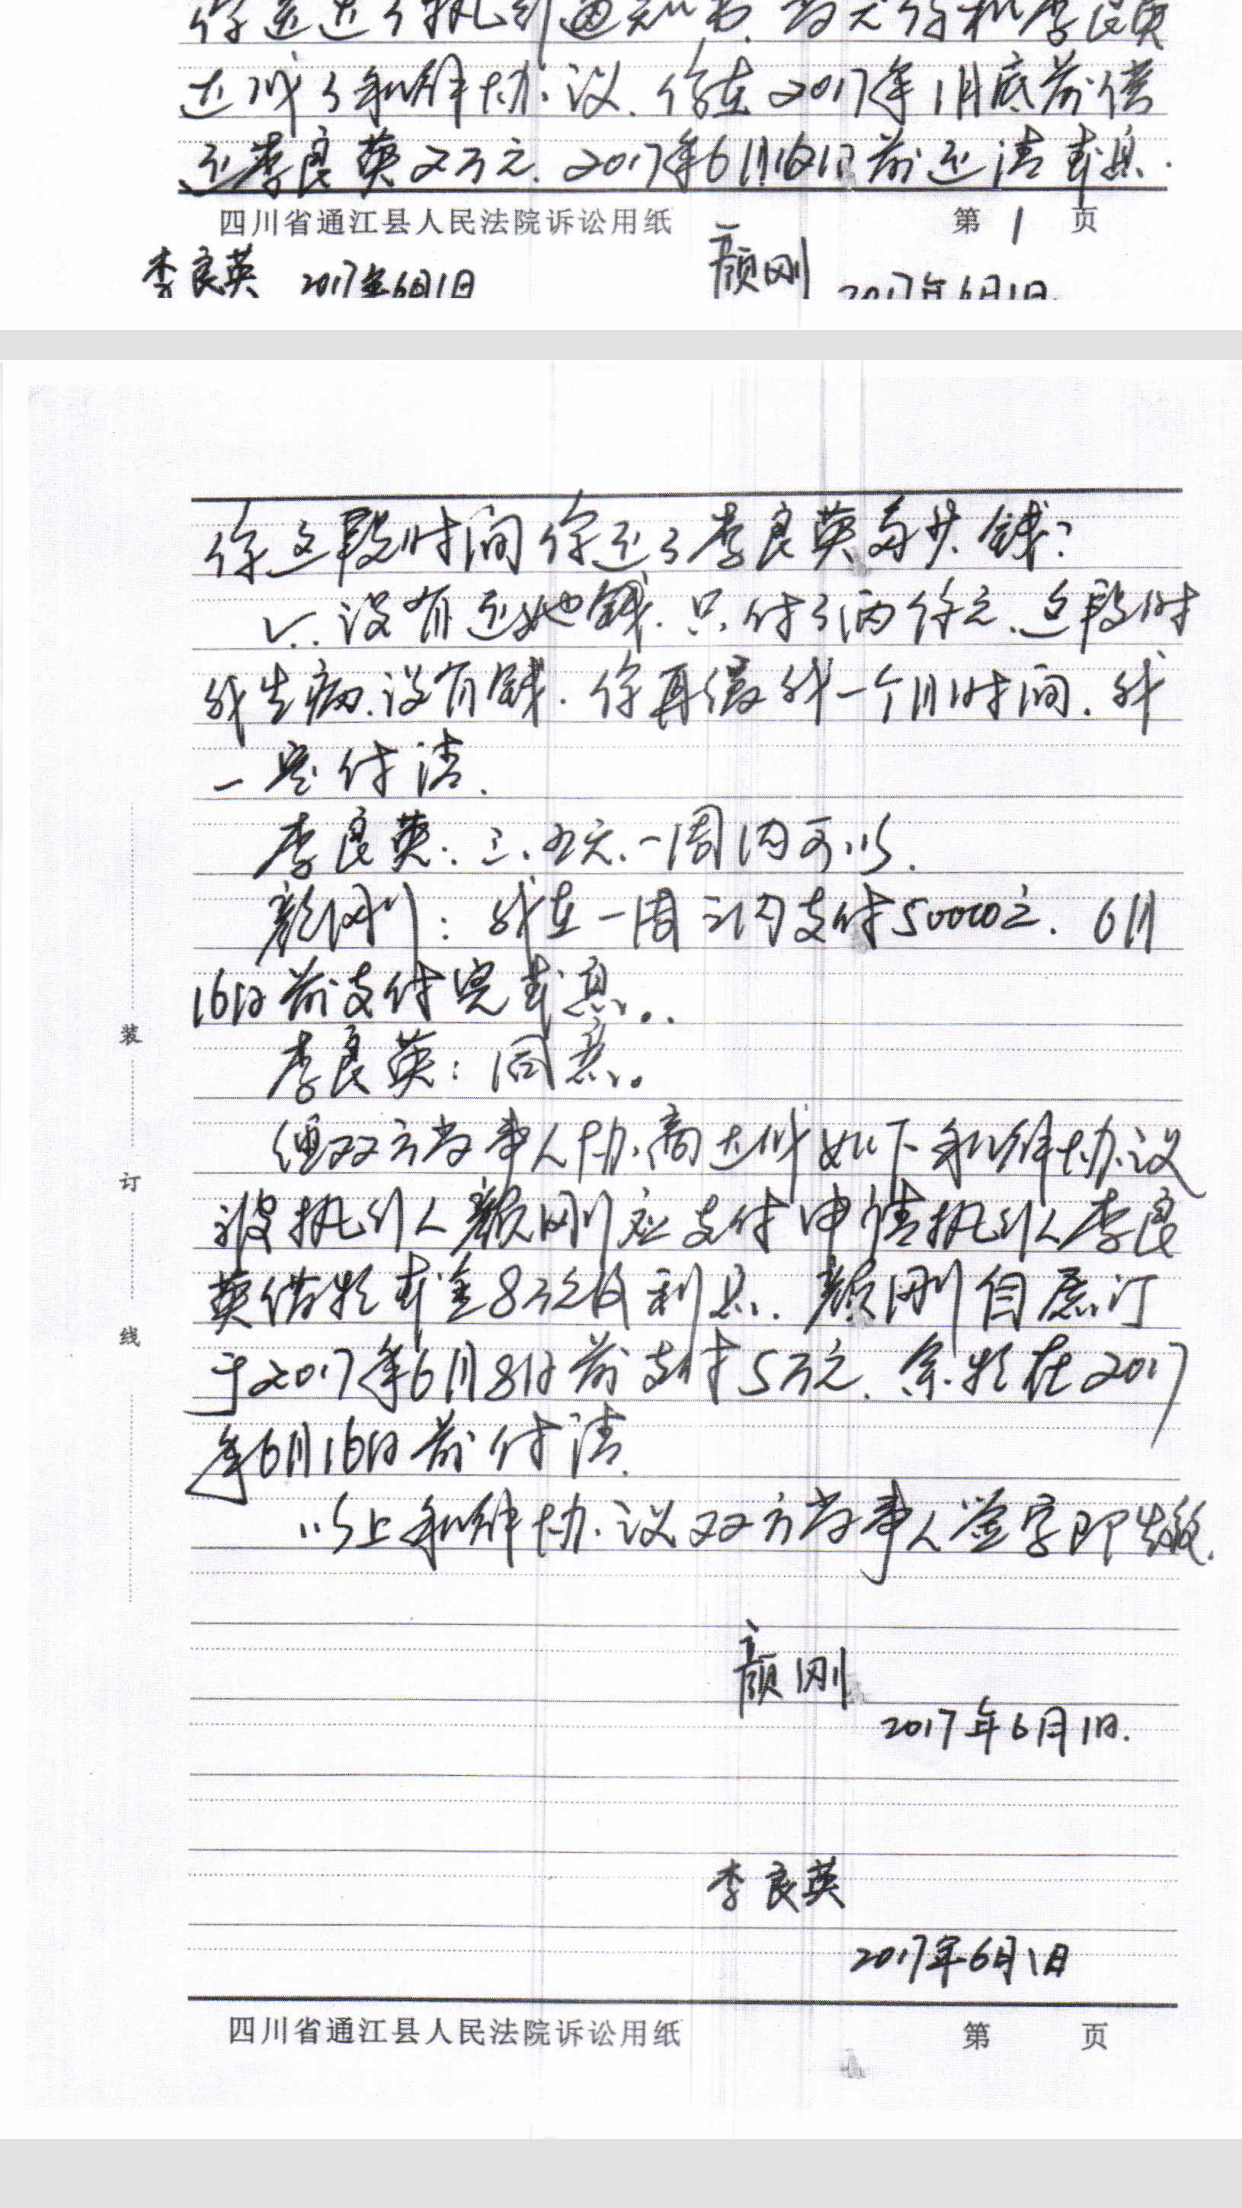 你送达了执行通知书、当天你和李良英
达成了和解协议、你在2017年1月底前偿
还李良英2万元、2017年6月 日前还清本息.
四川省通江县人民法院诉讼用纸 第 1 页
李良英 2017年6月1日 颜刚 2017年6月1日.
你这段时间你还了李良英多少钱?
 没有还她钱.只付了两 元、这段时
我生病、没有钱.你再缓我一个月时间.我
一定付清.
李良英:三、五天、一周内可以.
颜刚:我在一周之内支付50000元.6月
16日前支付完本息。
李良英:同意。
经双方当事人协商达成如下和解协议
被执行人颜刚应支付申请执行人李良
英借款本金8万元及利息.颜刚自愿订
于2017年6月8日前支付5万元、余款在2017
年6月16日前付清.
以上和解协议双方当事人签字即生效.
颜刚
2017年6月1日.
李良英
2017年6月1日
装
订
线
四川省通江县人民法院诉讼用纸 第 页